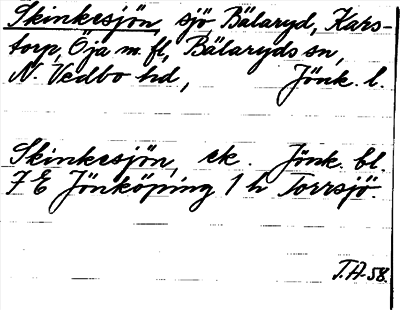 Skinkesjön, sjö Bälaryd, Kars-
torp, Öja m. fl, Bälaryds sn,
N. Vedbo hd, Jönk. l.
Skinkesjön, ek. Jönk. bl.
7 E Jönköping 1 h Torrsjö.
T.A-58.